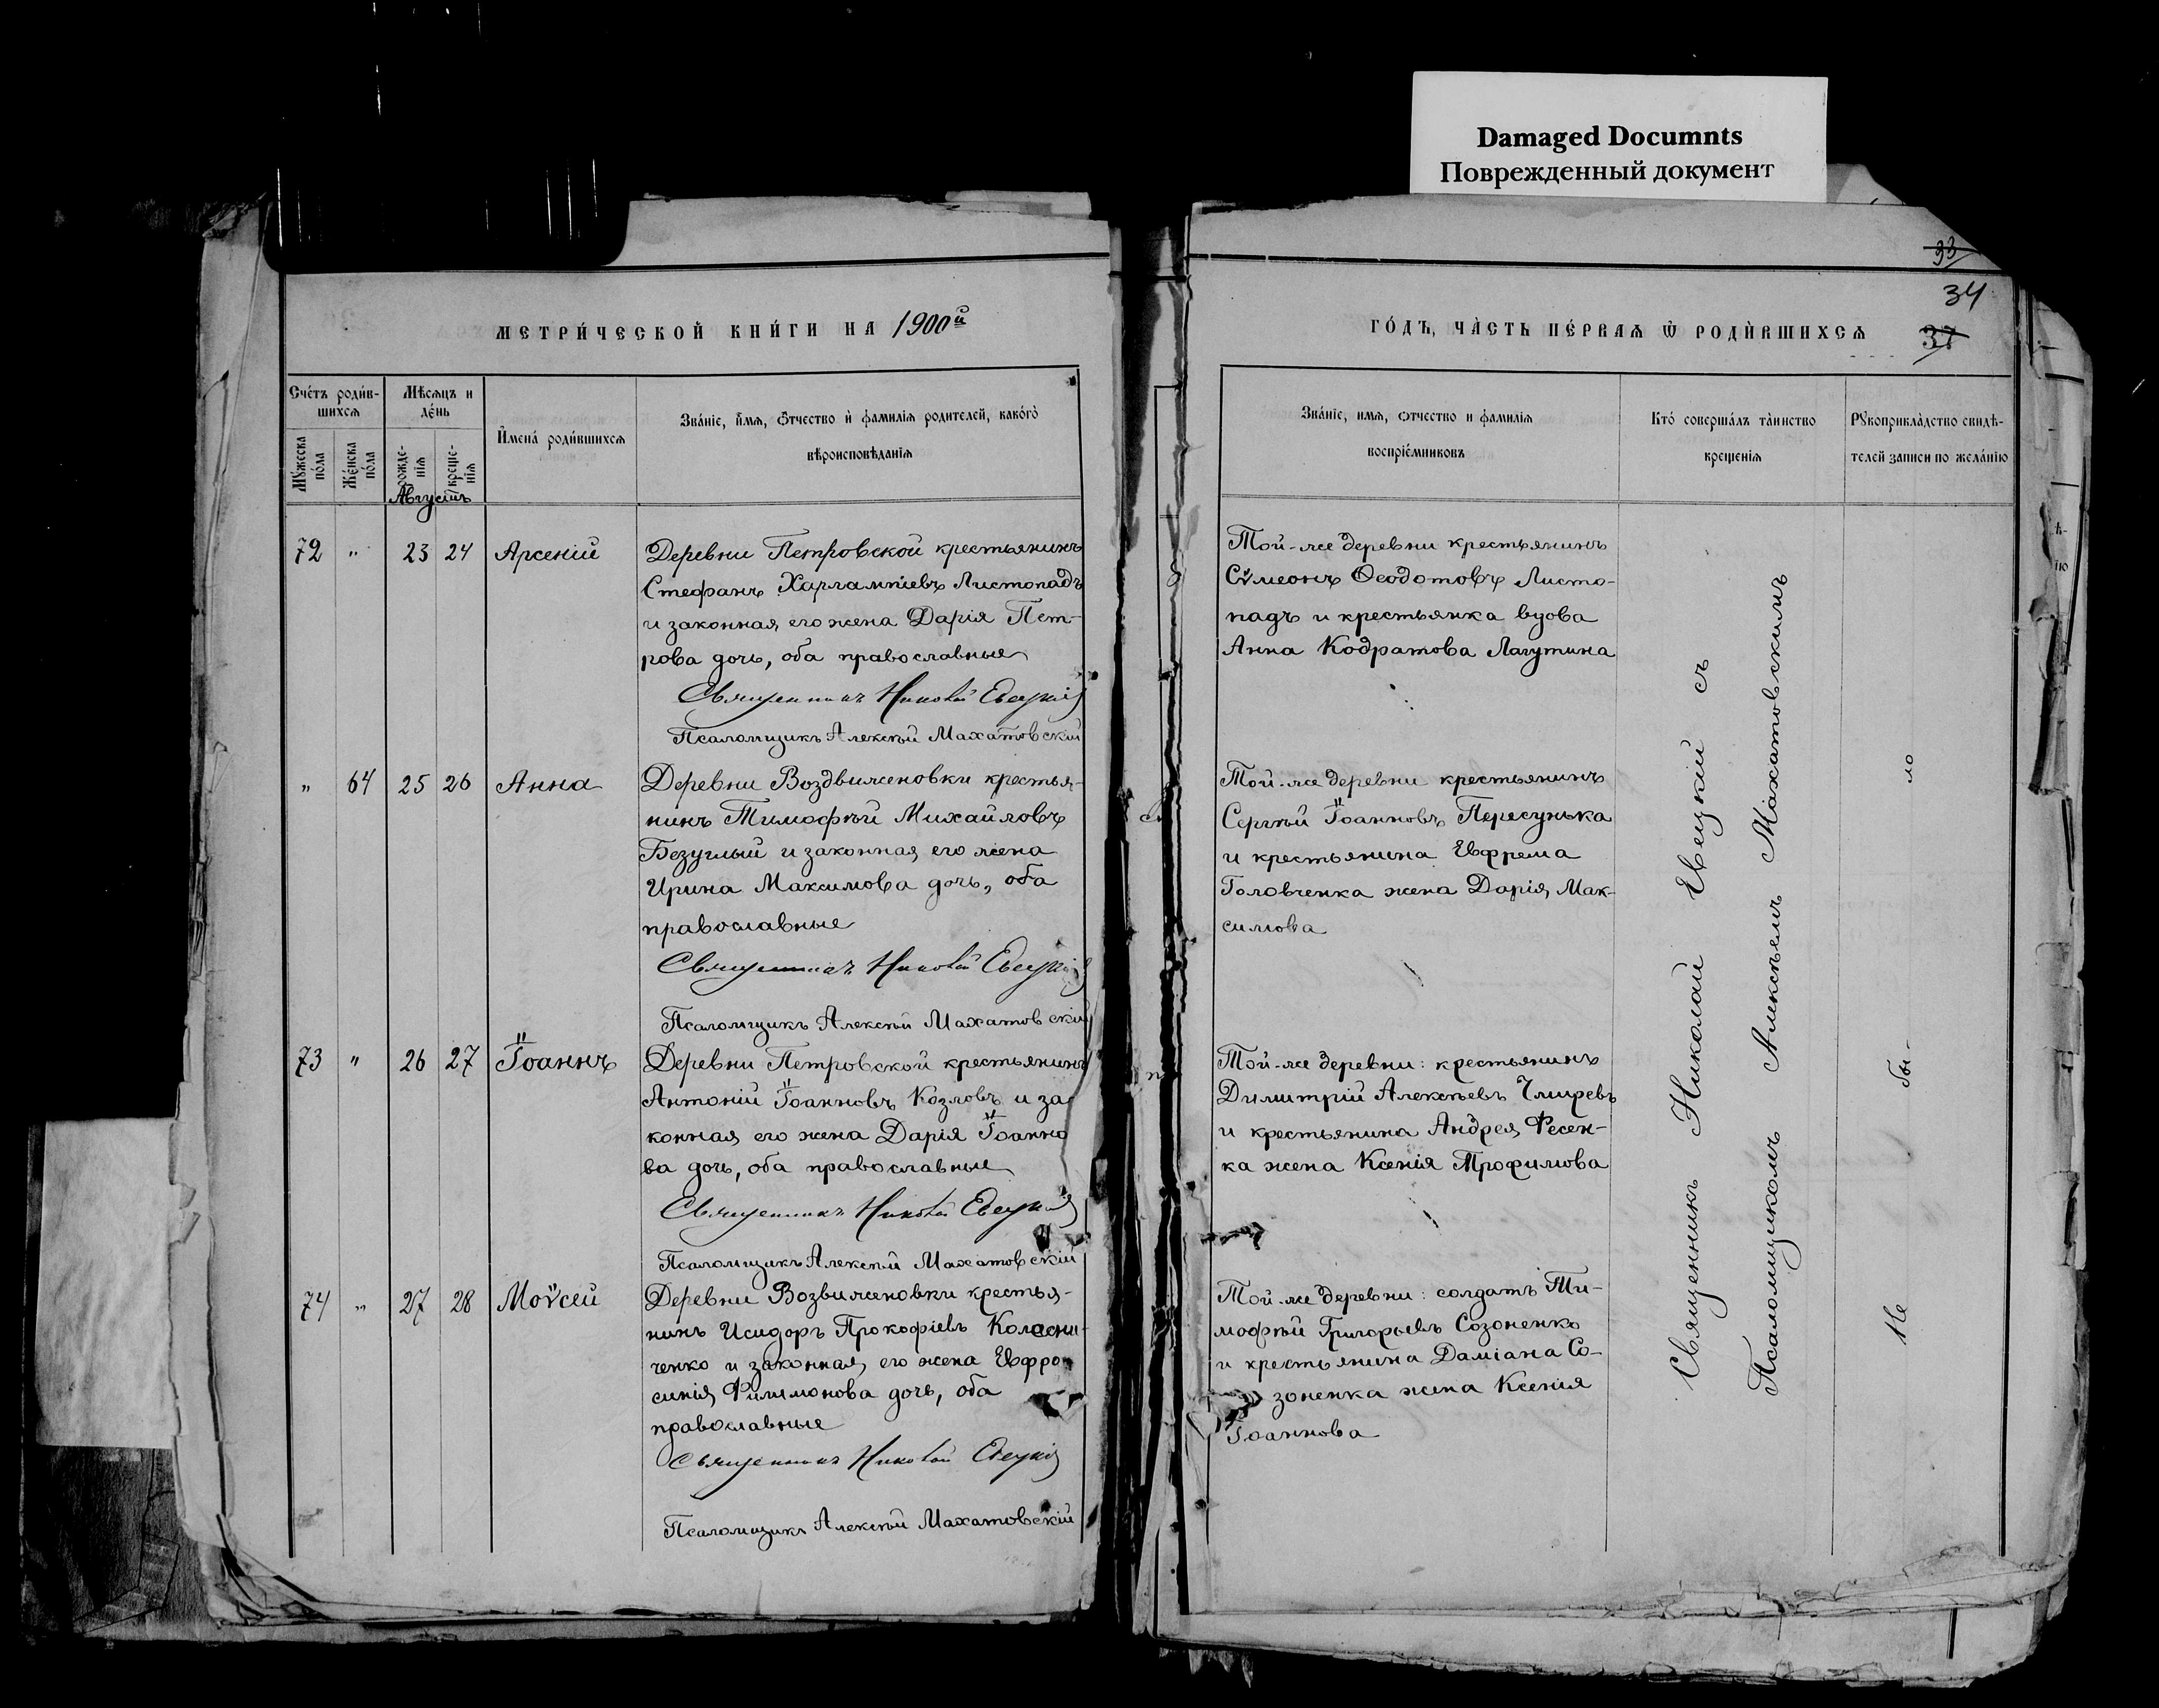 Damaged Documnts
Поврежденный документ
33
34
37
МЕТРИ́ЧЕСКОЙ КНИ́ГИ НА 1900й
ГО́ДЪ, ЧА̀СТЬ ПЕ́РВАѦ Ѡ҆ РОДЍВШИХСѦ
Сче́тъ роди́в-
шихсѧ
Мѣ́сѧцъ и
де́нь
Мꙋ́жеска
по́ла
Же́нска
по́ла
рожде-
нїѧ
креще-
нїѧ
И҆мена́ роди́вшихсѧ
Зва́нїе, и҆́мѧ, ѻ҆́тчество и҆ фамилїѧ родителей, како́гѡ
вѣроисповѣ́данїѧ
Зва́нїе, имѧ, ѻтчество и фамилїѧ
воспрїе́мниковъ
Кто́ соверша́лъ та̀инство
крещенїѧ
Рꙋкоприкла̀дство свидѣ-
телей записи по жела́нїю
Августъ
72 " 23 24 Арсеній
Деревни Петровской крестьянинъ
Стефанъ Харлампіевъ Листопадъ
и законная его жена Дарія Пет-
рова дочь, оба православные
Священникъ Николай Евецкій
Псаломщикъ Алексѣй Махатовскій
Той-же деревни крестьянинъ
Сѵмеонъ Ѳеодотовъ Листо-
падъ и крестьянка вдова
Анна Кодратова Лагутина
" 64 25 26 Анна
Деревни Воздвиженовки крестья-
нинъ Тимофѣй Михайловъ
Безуглый и законная его жена
Ирина Максимова дочь, оба
православные
Священникъ Николай Евецкій
Псаломщикъ Алексѣй Махатовскій
Той-же деревни крестьянинъ
Сергѣй Іоанновъ Пересунька
и крестьянина Евфрема
Головченка жена Дарія, Мак-
симова
73 " 26 27 Іоаннъ
Деревни Петровской крестьянинъ
Антоній Іоанновъ Козловъ и за
конная его жена Дарія Іоанно
ва дочь, оба православные
Священникъ Николай Евецкій
Псаломщикъ Алексѣй Махатовскій
Той-же деревни: крестьянинъ
Димитрій Алексѣевъ Чмиревъ
и крестьянина Андрея Фесен-
ка жена Ксенія Трофимова
74 " 27 28 Моѵсей
Деревни Возвиженовки крестья-
нинъ Исидоръ Прокофіевъ Колесни-
ченко и законная его жена Евфро
синія Филимонова дочь, оба
православные
Священникъ Николай Евецкій
Псаломщикъ Алексѣй Махатовскій
Той-же деревни: солдатъ Ти-
мофѣй Григорьевъ Созоненко
и крестьянина Даміана Со-
зоненка жена Ксенія
Іоаннова
Священникъ Николай Евецкій съ
Псаломщикомъ Алексѣемъ Махатовскимъ
Не бы-ло